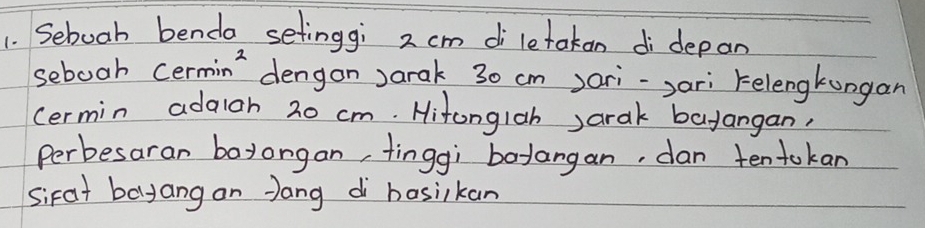 1. Sebuah benda setinggi 2 cm di letakan di depan
sebuah cermin² dengan jarak 30 cm jari - jari kelengkungan
cermin adalah 20 cm. Hitunglah jarak bayangan,
perbesaran bayangan, tinggi bayangan, dan tentukan
sifat bayangan yang di hasilkan